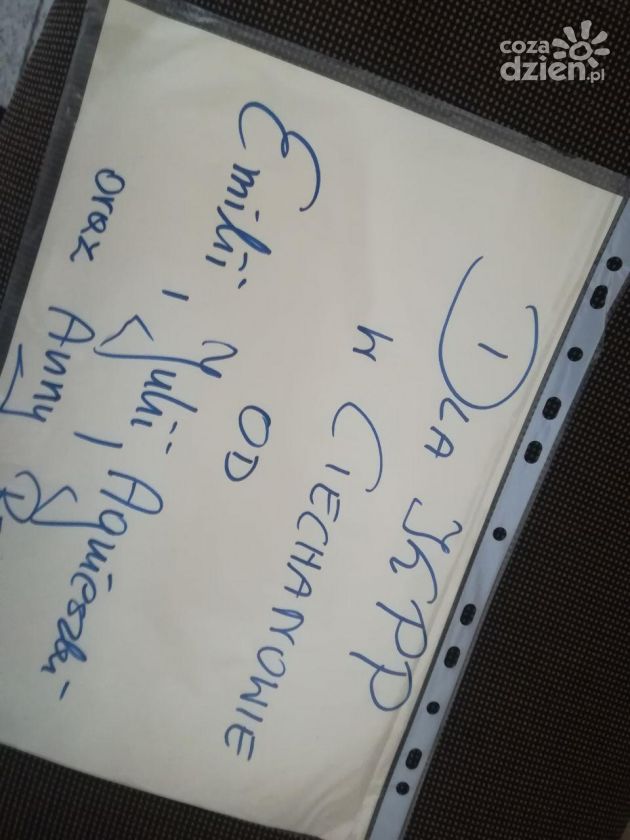 DLA KPP
W CIECHANOWIE
OD
Emilii, Julii, Agnieszki
oraz Anny
coza
dzień.pl